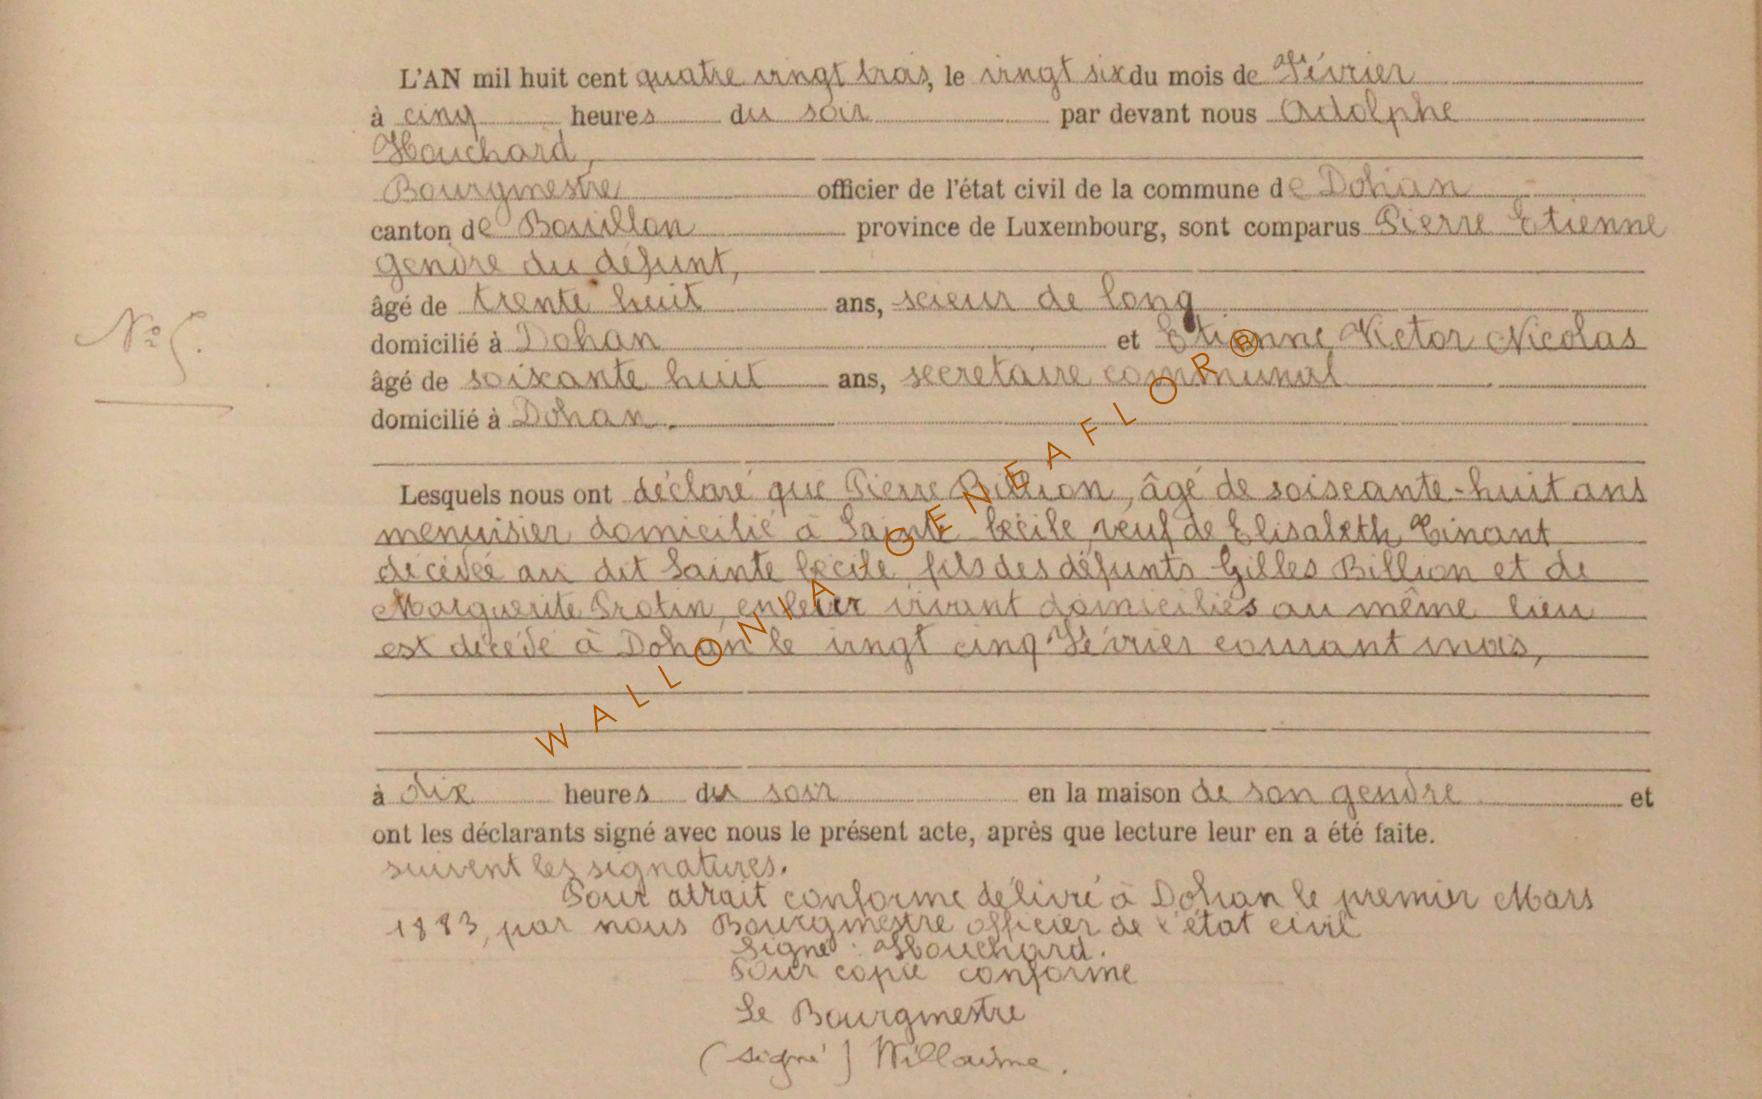 L'AN mil huit cent quatre vingt trois, le vingt six du mois de Février
à cinq heures du soir par devant nous Adolphe
Houchard,
Bourgmestre officier de l'état civil de la commune de Dohan
canton de Bouillon province de Luxembourg, sont comparus Pierre Etienne
gendre du défunt,
âgé de trente huit ans, scieur de long
domicilié à Dohan et Etienne Victor Nicolas
N° 5.
âgé de soixante huit ans, secretaire communal
domicilié à Dohan.
Lesquels nous ont déclaré que Pierre Billion, âgé de soiscante-huit ans
menuisier domicilié à Sainte Cécile veuf de Elisabeth Tinant
décédée au dit Sainte Cécile fils des défunts Gilles Billion et de
Marguerite Protin, en leur vivant domiciliés au même lieu
est décédé à Dohan le vingt cinq Février courant mois,
WALLONIA GENEAFLOR ®
à dix heures du soir en la maison de son gendre et
ont les déclarants signé avec nous le présent acte, après que lecture leur en a été faite.
suivent les signatures.
Pour extrait conforme délivré à Dohan le premier Mars
1883, par nous Bourgmestre officier de l'état civil
Signé : Houchard.
Pour copie conforme
Le Bourgmestre
(signé) Willaime.